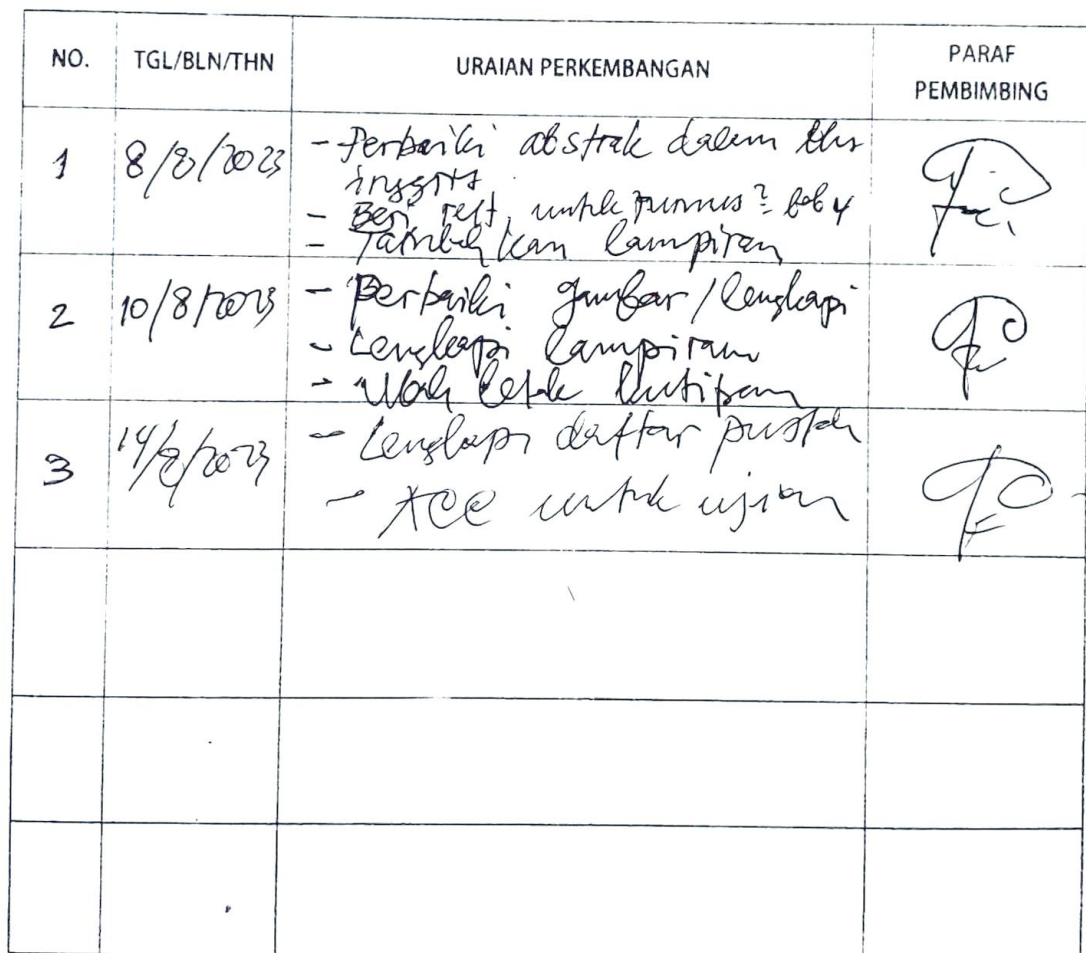 NO. TGL/BLN/THN URAIAN PERKEMBANGAN PARAF
PEMBIMBING
1 8/8/2023 - Perbaiki abstrak dalam bhs
inggris
- Beri reff. untuk rumus² bab 4
- Tambahkan lampiran
2 10/8/2023 - Perbaiki gambar/lengkapi
- Lengkapi lampiran
- Ubah letak kutipan
3 14/8/2023 - Lengkapi daftar pustaka
- ACC untuk ujian